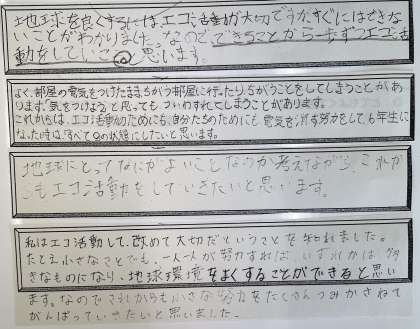 地球を良くするにはエコ活動が大切ですが、すぐにはできな
いことがわかりました。なので、できることから一歩ずつエコ活
動をしていこうと思います。
よく、部屋の電気をつけたままちがう部屋に行ったりちがうことをしてしまうことがあ
ります。気をつけようと思っても、ついわすれてしまうことがあります。
これからは、エコ活動のためにも、自分たちのためにも電気を消す努力をして6年生に
なった時は、すべて◎の状態にしたいと思います。
地球にとってなにがよいことなのか考えながら、これか
らもエコ活動をしていきたいと思います。
私はエコ活動して、改めて大切だということを知れました。
たとえ小さなことでも、一人一人が努力すれば、いずれかは、大
きなものになり、地球環境をよくすることができると思い
ます。なのでこれからも小さな努力をたくさんつみかさねて
がんばっていきたいと思いました。